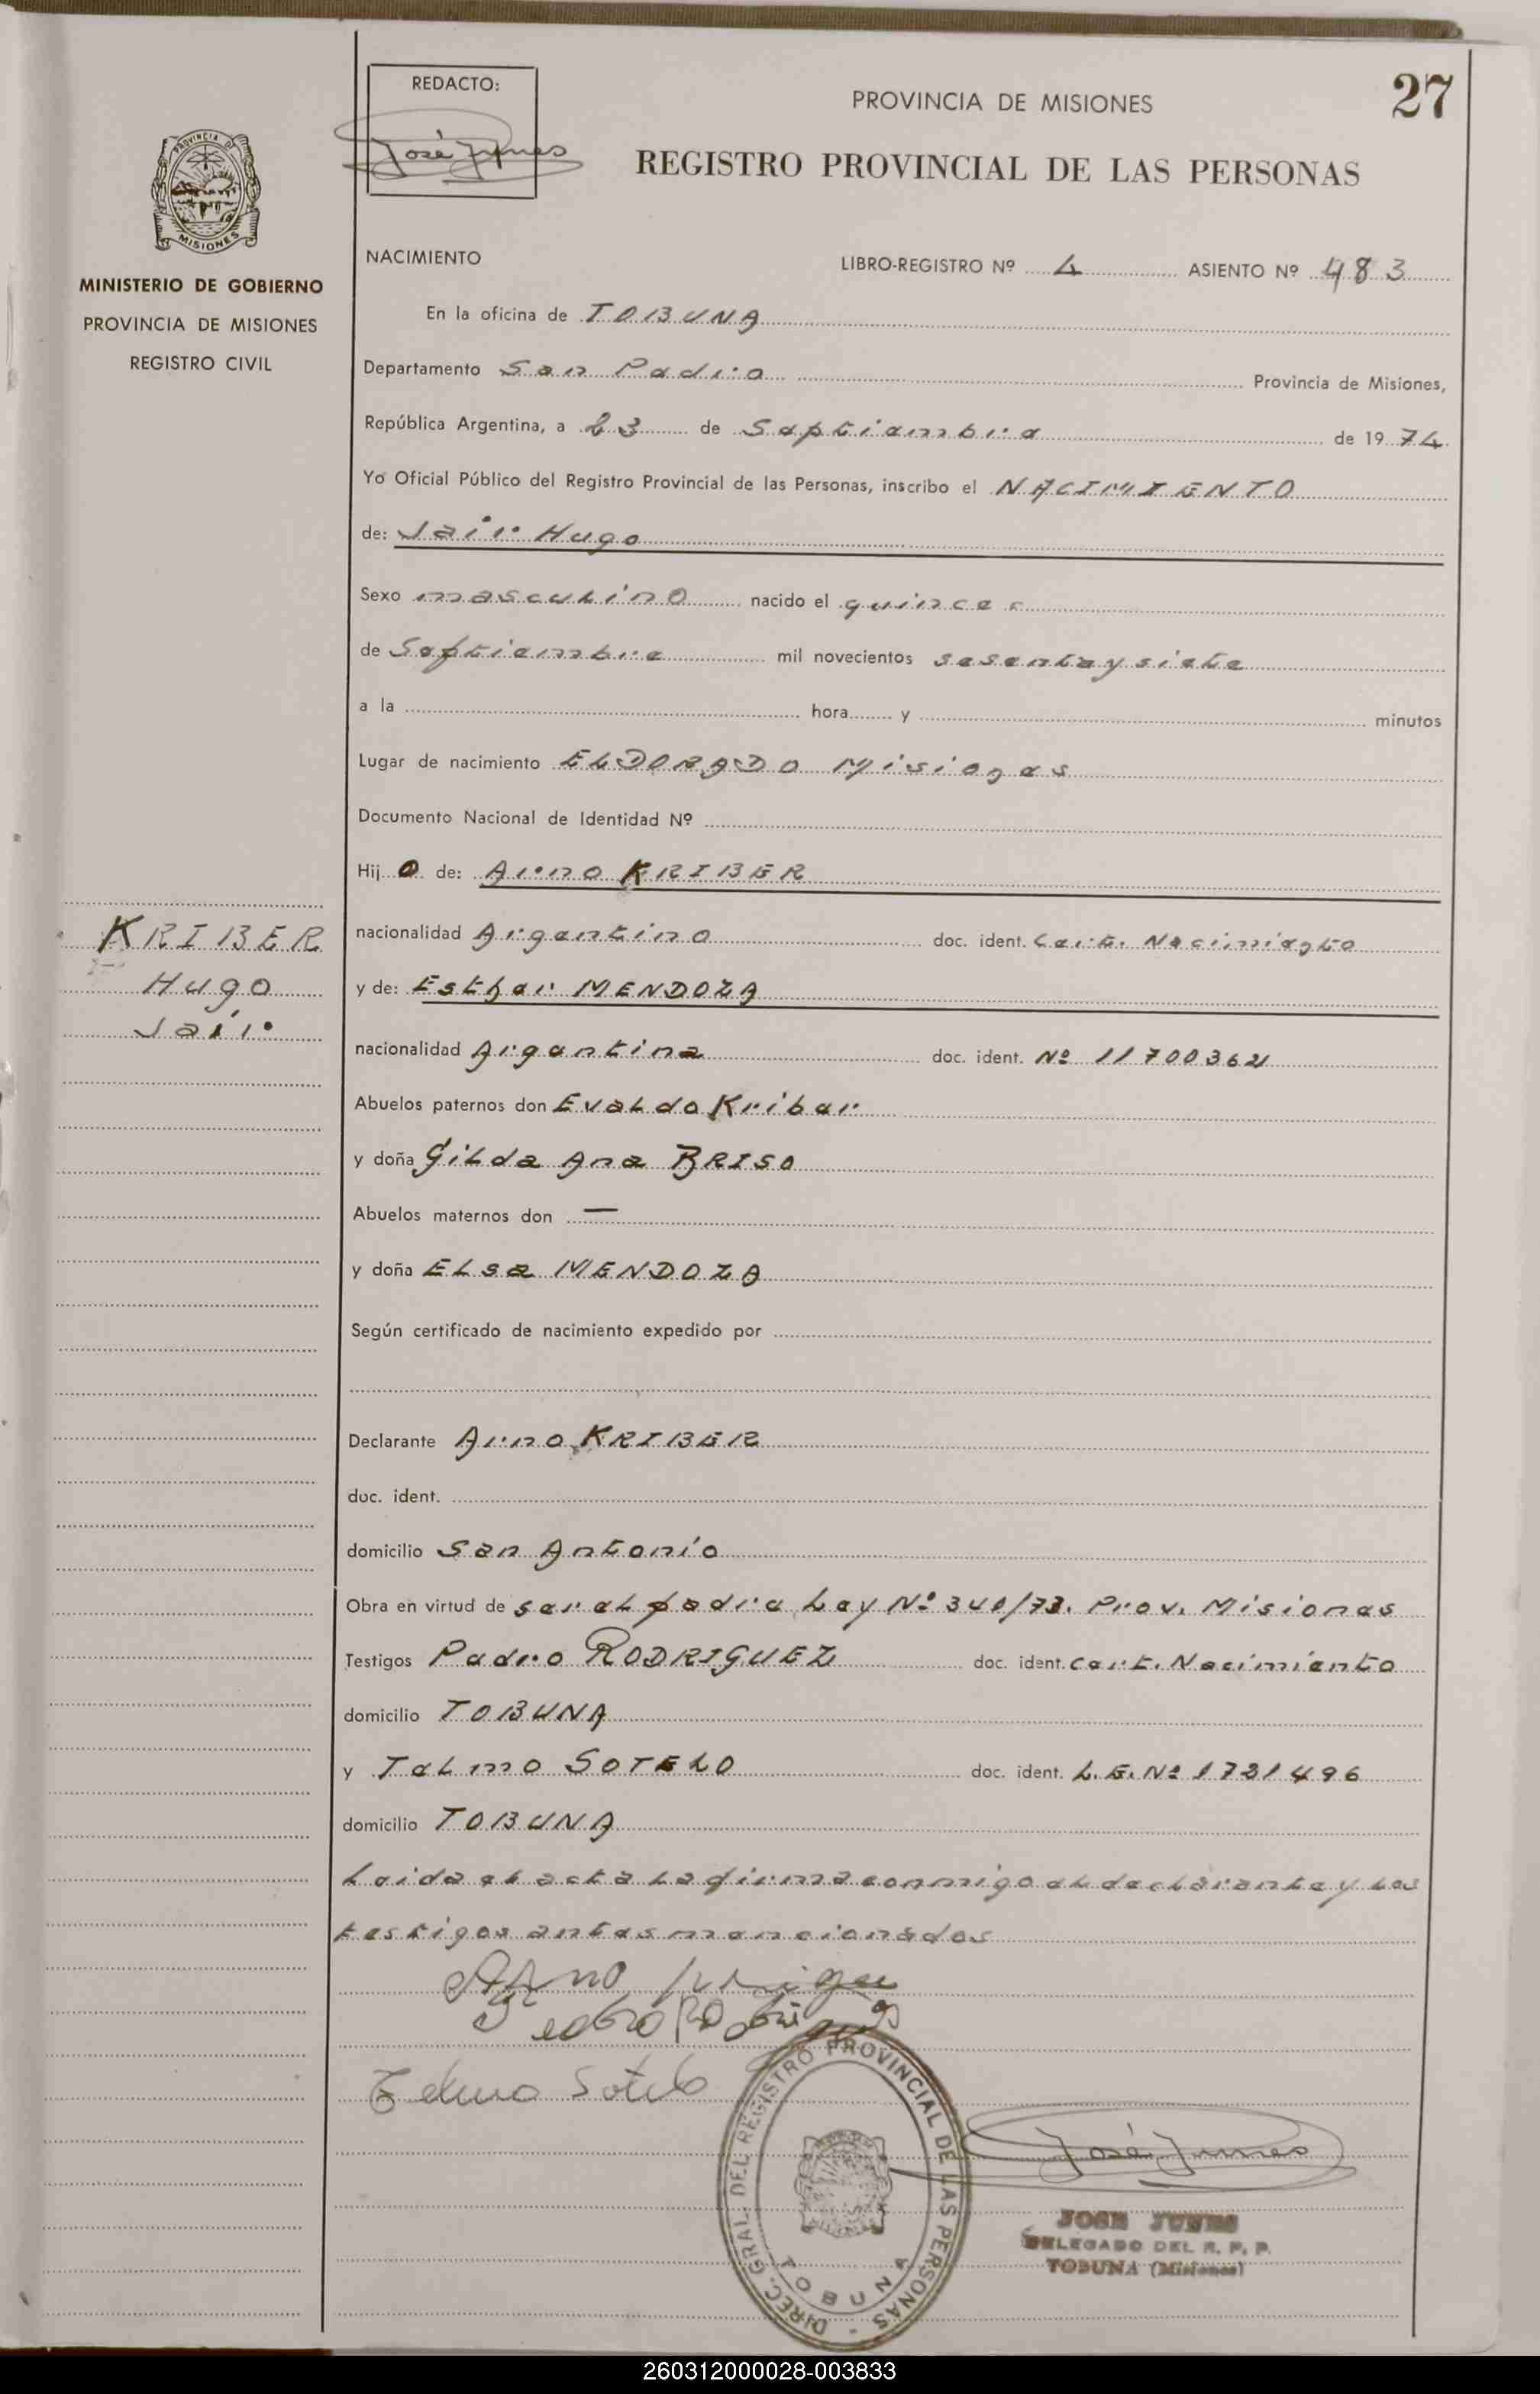 27
REDACTO:
José Junes
PROVINCIA DE MISIONES
REGISTRO PROVINCIAL DE LAS PERSONAS
PROVINCIA DE
MISIONES
MINISTERIO DE GOBIERNO
PROVINCIA DE MISIONES
REGISTRO CIVIL
NACIMIENTO LIBRO-REGISTRO Nº 4 ASIENTO Nº 483
En la oficina de TOBUNA
Departamento San Pedro Provincia de Misiones,
República Argentina, a 23 de Septiembre de 1974
Yo Oficial Público del Registro Provincial de las Personas, inscribo el NACIMIENTO
de: Jair Hugo
Sexo masculino nacido el quince
de Septiembre mil novecientos sesenta y siete
a la hora y minutos
Lugar de nacimiento ELDORADO Misiones
Documento Nacional de Identidad Nº
Hijo de: Arno KRIBER
KRIBER
Hugo
Jair
nacionalidad Argentino doc. ident. Cert. Nacimiento
y de: Esther MENDOZA
nacionalidad Argentina doc. ident. Nº 11700362
Abuelos paternos don Evaldo Kriber
y doña Gilda Ana BRISO
Abuelos maternos don —
y doña Elsa MENDOZA
Según certificado de nacimiento expedido por
Declarante Arno KRIBER
doc. ident.
domicilio San Antonio
Obra en virtud de ser el padre Ley Nº 340/73. Prov. Misiones
Testigos Pedro RODRIGUEZ doc. ident. Cert. Nacimiento
domicilio TOBUNA
y Telmo SOTELO doc. ident. L.E. Nº 1721496
domicilio TOBUNA
Leida el acta la firma conmigo el declarante y los
testigos antes mencionados
Arno
Pedro Rodriguez
Telmo Sotelo
DIREC. GRAL. DEL REGISTRO PROVINCIAL DE LAS PERSONAS -
TOBUNA
José Junes
JOSE JUNES
DELEGADO DEL R. P. P.
TOBUNA (Misiones)
260312000028-003833